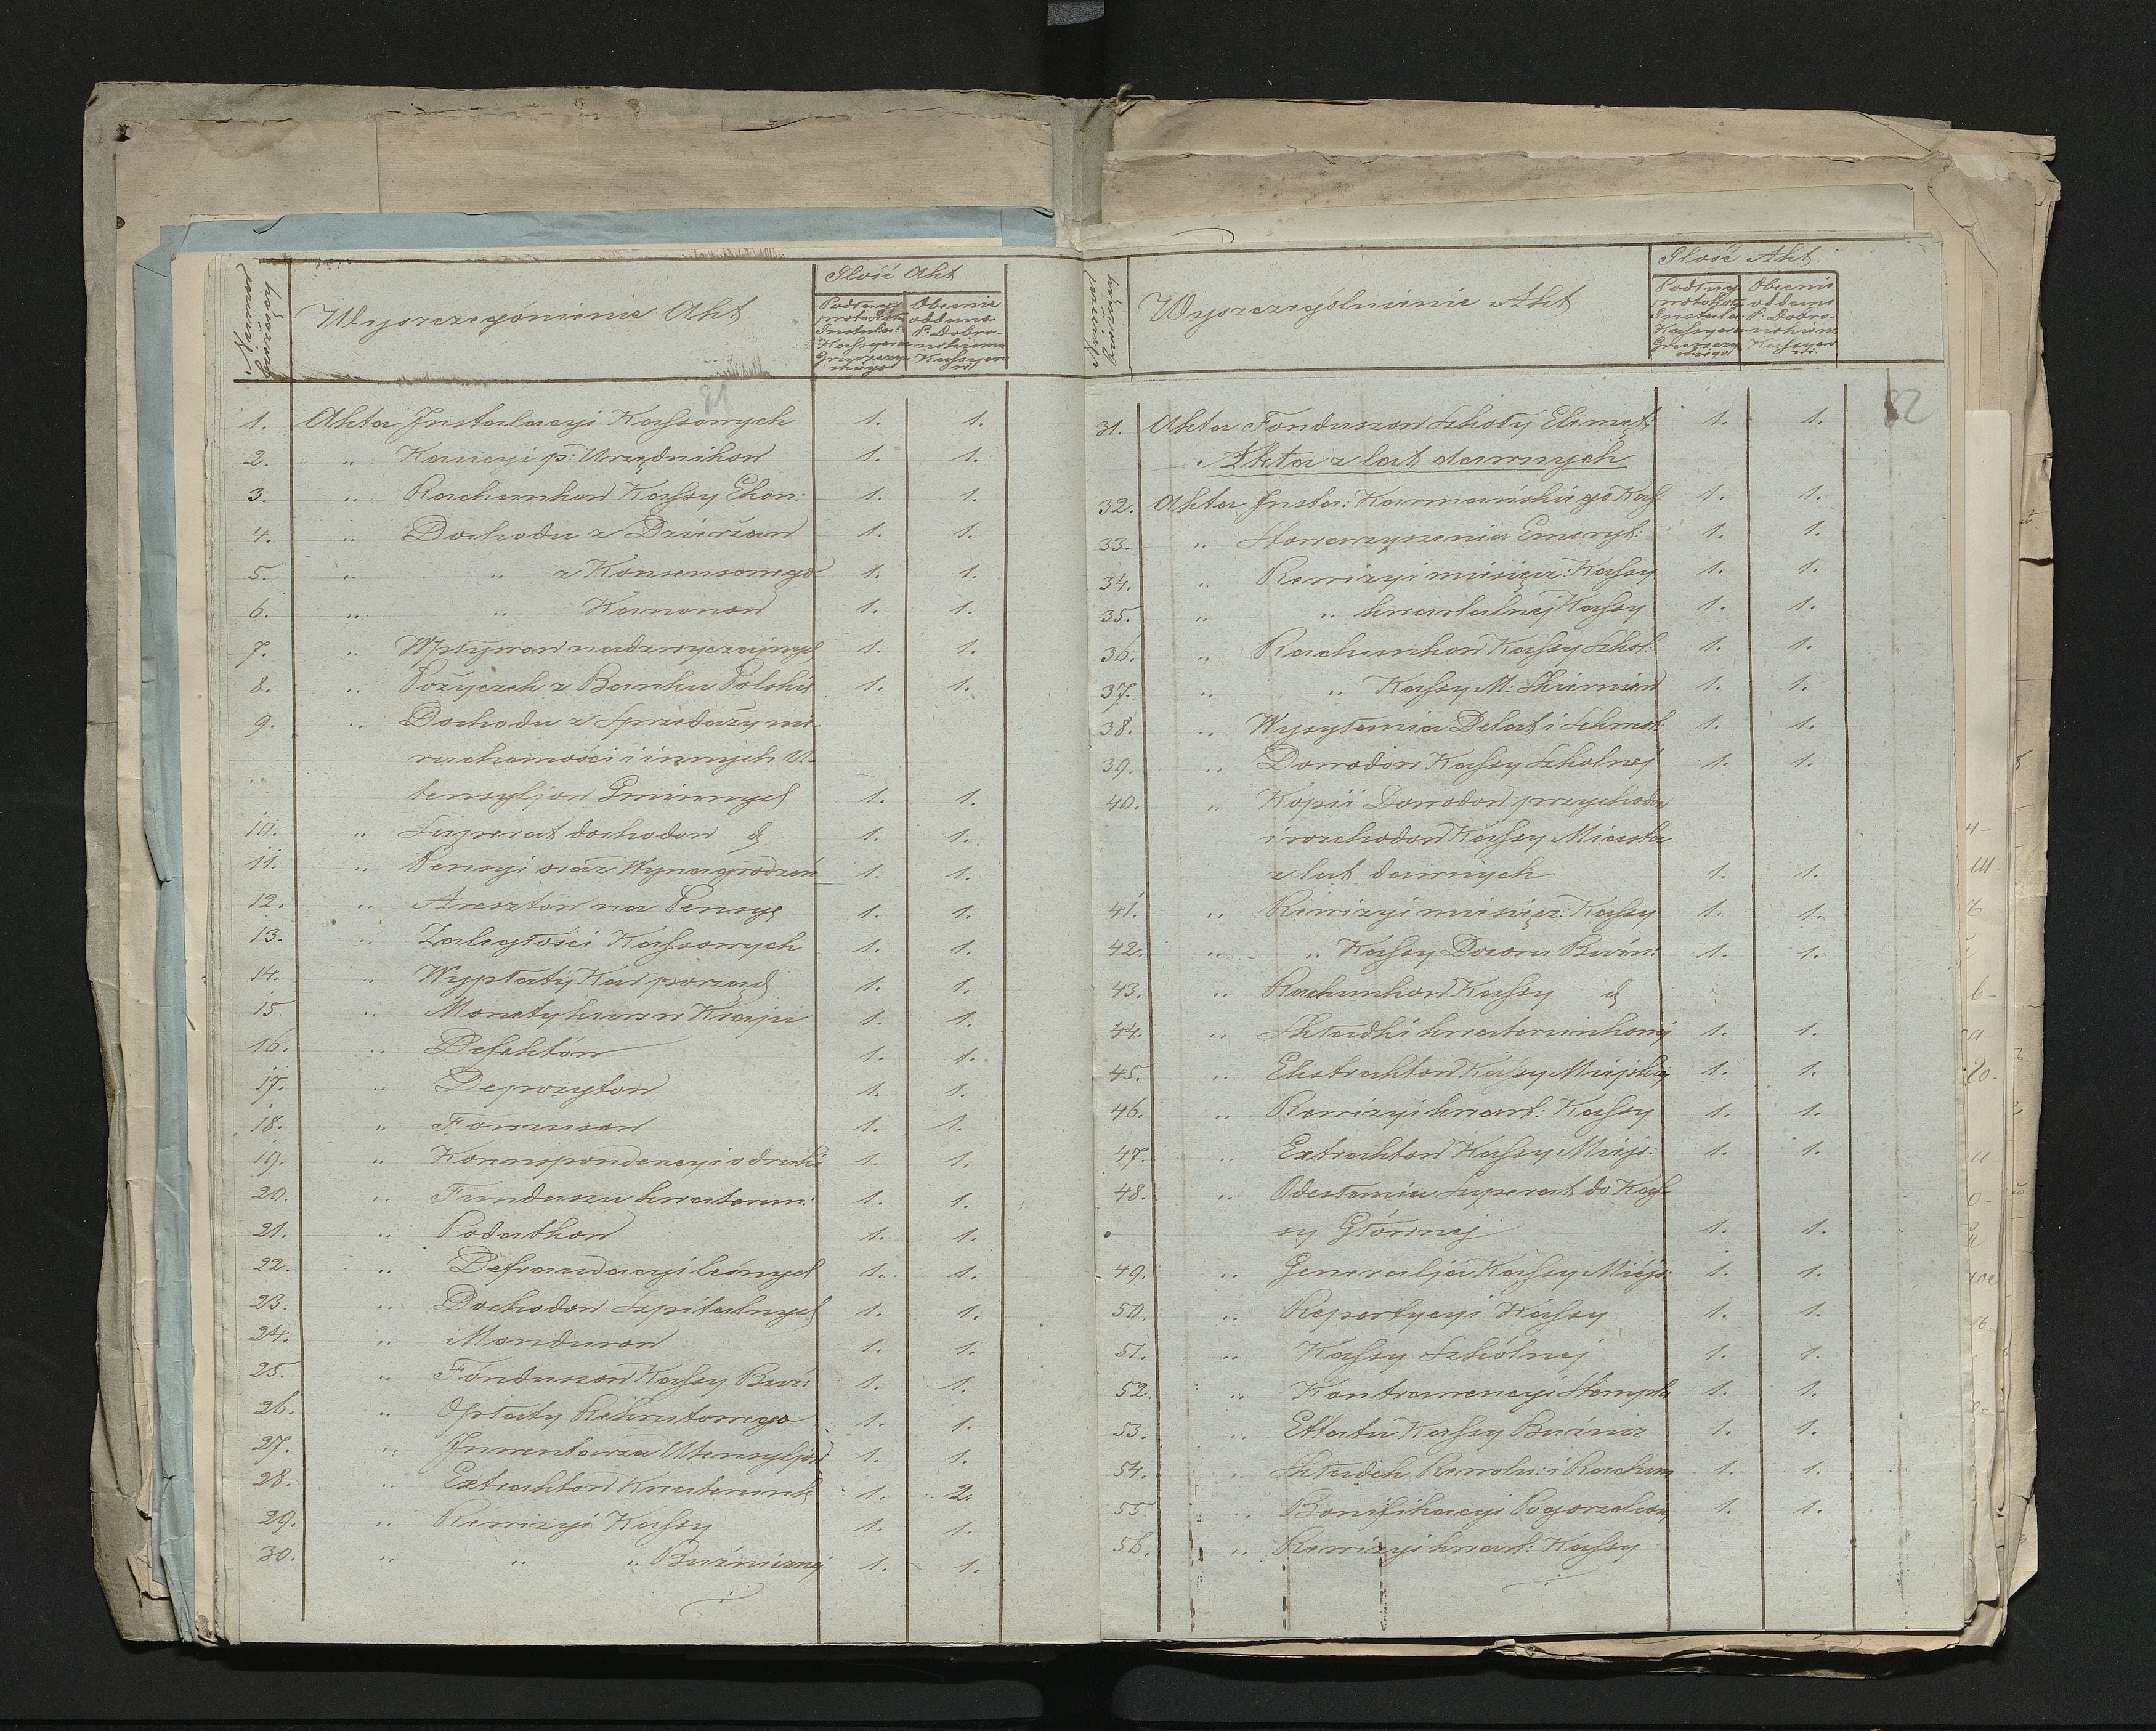 Numer bieżący
Wyszczegónienie Akt
Ilość Akt
Podług protokółu Instala: Kassyera
Obecnie oddano P. Dobro- Kassyero
81
1. Akta Instalacyi Kassowych 1. 1.
2. „ Kaucyi p: Urzędnikow 1. 1.
3. „ Rachunkow Kassy Ekon: 1. 1.
4. „ Dochodu z Dzierżaw 1. 1.
5. „ „ z Konsensowego 1. 1.
6. „ „ Kanonow 1. 1.
7. „ Wpływow nadzwyczajnych 1. 1.
8. „ Pożyczek z Banku Polskie 1. 1.
9. „ Dochodu z Sprzedaży nie-
ruchomości i innych U-
tensyljow Gminnych 1. 1.
10. „ Superat dochodow d 1. 1.
11. „ Pensyi oraz Wynagrodzeń 1. 1.
12. „ Aresztow na Pensye 1. 1.
13. „ Zaległości Kassowych 1. 1.
14. „ Wypłaty Kar porząd 1. 1.
15. „ Monety kurs w Kraju 1. 1.
16. „ Defektów 1. 1.
17. „ Depozytow 1. 1.
18. „ Forszusow 1. 1.
19. „ Korrespondencyi o druki 1. 1.
20. „ Funduszu kwaterun: 1. 1.
21. „ Podatkow 1. 1.
22. „ Defraudacyi leśnych 1. 1.
23. „ Dochodow Szpitalnych 1. 1.
24. „ Mondurow 1. 1.
25. „ Fonduszow Kassy Buż: 1. 1.
26. „ Opłaty Rekrutowego 1. 1.
27. „ Inwentarza Utensyljow 1. 1.
28. „ Extraktow Kwaterunk 1. 2.
29. „ Rewizyi Kassy 1. 1.
30. „ „ „ Bużnicznej 1. 1.
Numer bieżący
Wyszczególnienie Akt
Ilość Akt
Podług protokołu Instala: Kassyera
Obecnie oddano P. Dobro- Kassyero
82
31. Akta Fonduszow Szkoły Elemęt: 1. 1.
Akta z lat dawnych
32. Akta Insta: Karmańskiego Kass 1. 1.
33. „ Stowarzyszenia Emeryt: 1. 1.
34. „ Rewizyi miesięcz: Kassy 1. 1.
35. „ „ kwartalnej Kassy 1. 1.
36. „ Rachunkow Kassy Szkol: 1. 1.
37. „ „ Kassy M: Skierniew 1. 1.
38. „ Wysyłania Delat i 1. 1.
39. „ Dowodow Kassy Szkolnej 1. 1.
40. „ Kopii Dowodow przychodu
i rozchodow Kassy Miasta
z lat dawnych 1. 1.
41. „ Rewizyi miesięcz: Kassy 1. 1.
42. „ „ Kassy Dozoru Bużn: 1. 1.
43. „ Rachunkow Kassy d
44. „ Składki kwaterunkowej 1. 1.
45. „ Ekstraktow Kassy Miejskiej 1. 1.
46. „ Rewizyi kwart: Kassy 1. 1.
47. „ Extraktow Kassy Miejs: 1. 1.
48. „ Odesłania Superat do Kas-
sy Głównej 1. 1.
49. „ Generalja Kassy Miejs: 1. 1.
50. „ Repartycyi Kassy 1. 1.
51. „ Kassy Szkólnej 1. 1.
52. „ Kontrawencyi Stempla 1. 1.
53. „ Ettatu Kassy Bużnicz 1. 1.
54. „ Składek Rewolu: i Rachun 1. 1.
55. „ Bonifikacyi Pogorzelcow 1. 1.
56. „ Rewizyi kwart: Kassy